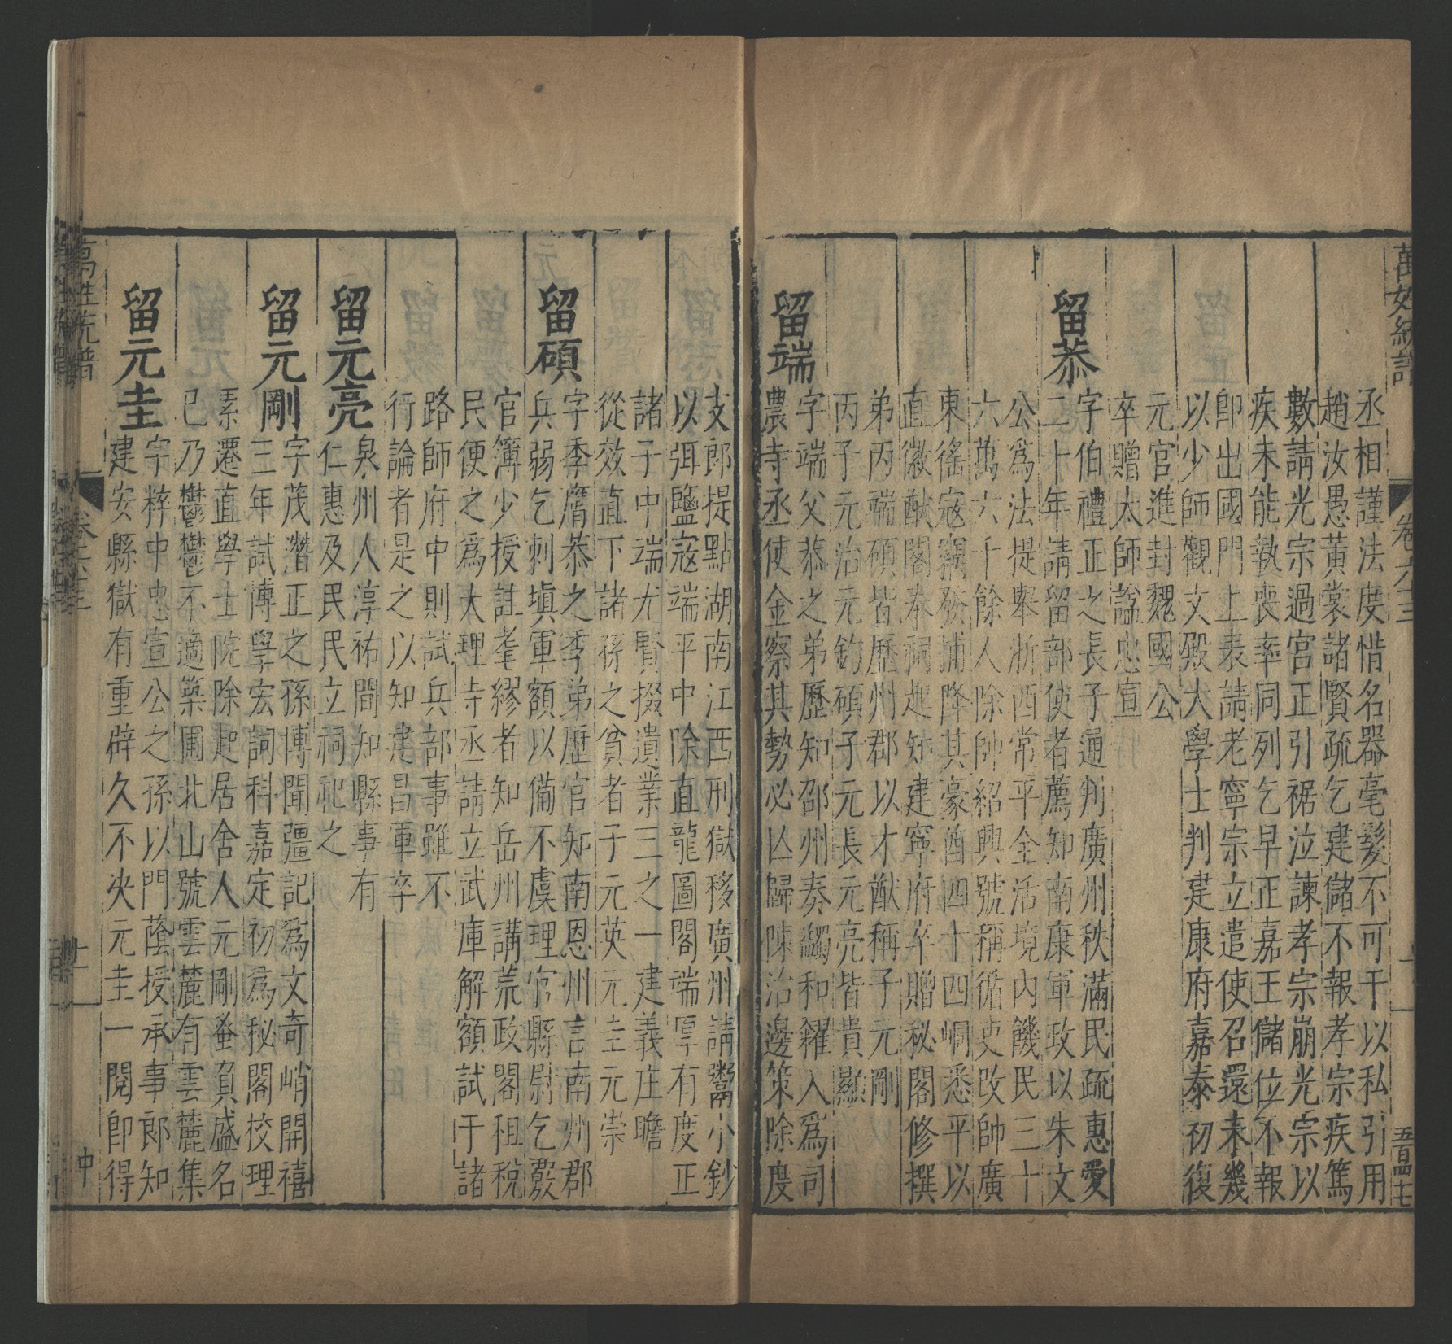 萬姓統譜 卷六十三
丞相謹法度惜名器毫髮不可干以私引用
趙汝愚黃裳諸賢疏乞建儲不報孝宗疾篤
數請光宗過宮正引裾泣諫孝宗崩光宗以
疾未能執喪率同列乞早正嘉王儲位不報
卽出國門上表請老寧宗立遣使召還未幾
以少師觀文殿大學士判建康府嘉泰初復
元官進封魏國公
卒贈太師諡忠宣
留恭
字伯禮正之長子通判廣州秩滿民疏惠愛
二十年請留部使者薦知南康軍政以朱文
公爲法提舉浙西常平全活境內饑民三十
六萬六千餘人除帥紹興號稱循吏改帥廣
東徭寇竊發捕降其豪酋四十四峒悉平以
直徽猷閣奉祠起知建寧府卒贈秘閣修撰
弟丙端碩皆歷州郡以才猷稱子元剛
丙子元治元鈞碩子元長元亮皆貴顯
留端
字端父恭之弟歷知邵州奏蠲和糴入爲司
農寺丞使金察其勢必凶歸陳治邊策除度
支郎提點湖南江西刑獄移廣州請鬻小鈔
以弭鹽寇端平中除直龍圖閣端厚有度正
諸子中端尤賢掇遺業三之一建義庄贍
從效直下諸孫之貧者子元英元圭元崇
留碩
字季膺恭之季弟歷官知南恩州言南州郡
兵弱乞刺塡軍額以備不虞理宗縣尉乞覈
官簿少授註耄繆者知岳州講荒政閣租稅
民便之爲大理寺丞請立武庫解額試于諸
路師府中則試兵部事雖不
行論者是之以知建昌軍卒
留元亮
泉州人淳祐間知縣事有
仁惠及民民立祠祀之
留元剛
字茂潛正之孫博聞彊記爲文奇峭開禧
三年試博學宏詞科嘉定初爲秘閣校理
累遷直學士院除起居舍人元剛蚤負盛名
已乃鬱鬱不適築圃北山號雲麓有雲麓集
留元圭
字梓中忠宣公之孫以門蔭授承事郎知
建安縣獄有重辟久不決元圭一閱卽得
萬姓統譜 卷六十三 十一 中